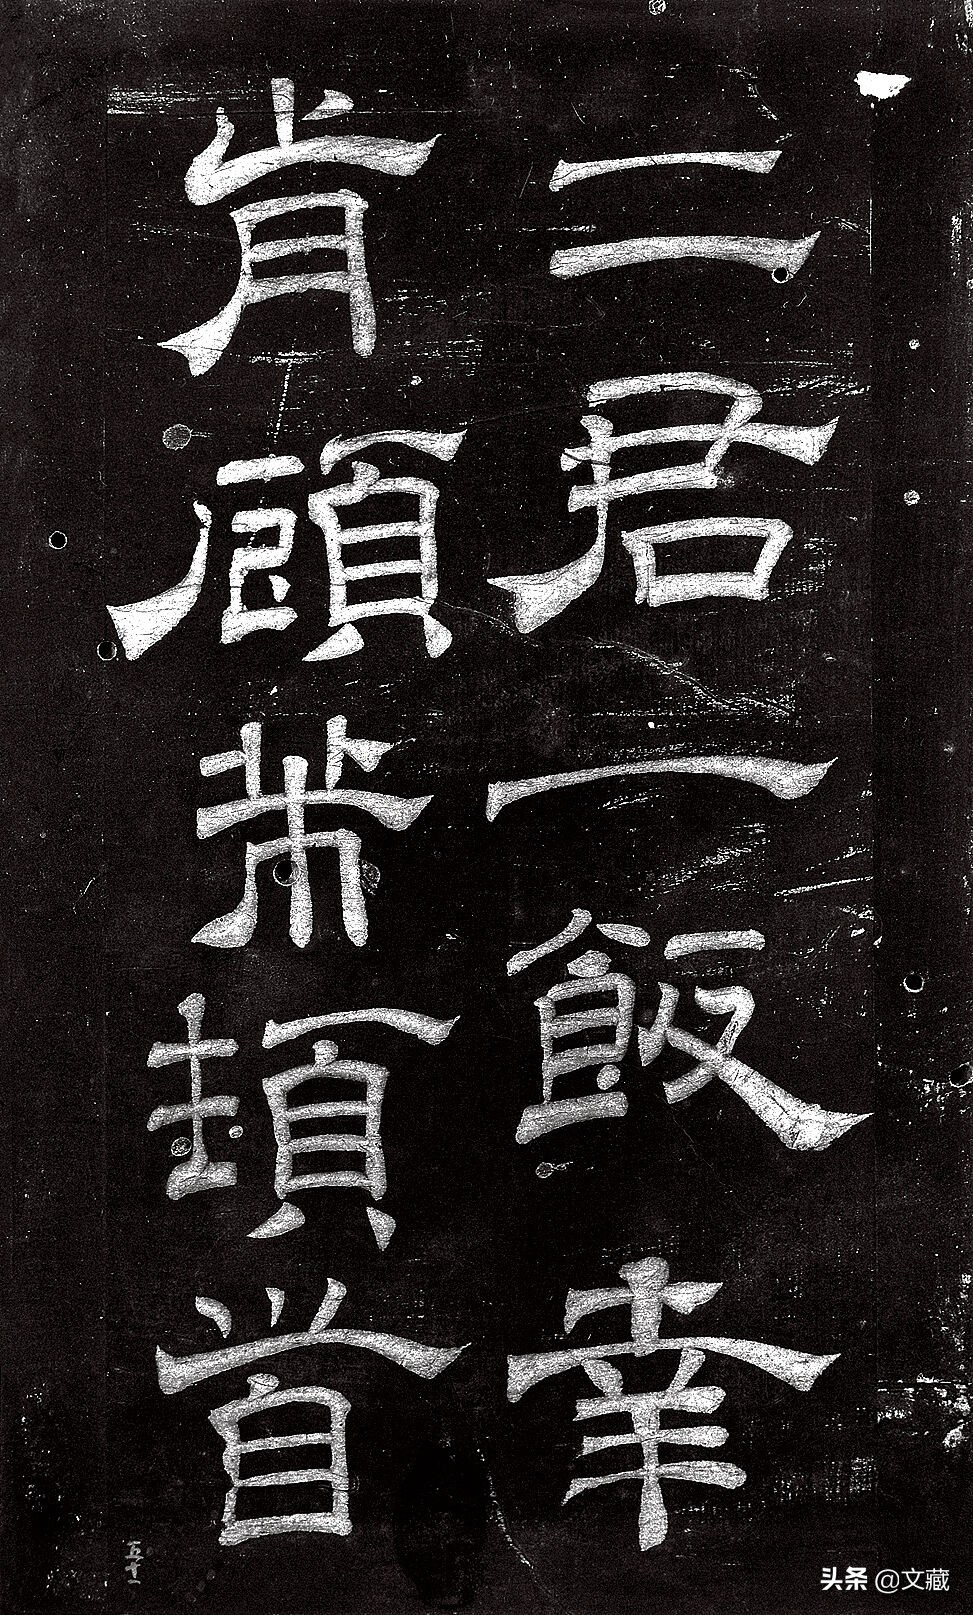 二君一飯幸
肯顧芾頓首
五十一
头条 @文藏